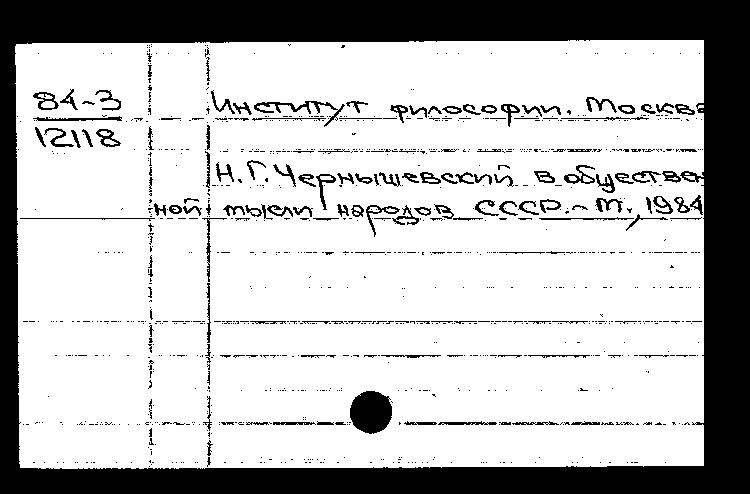 84-3
12118
Институт философии. Москва
Н. Г. Чернышевский в обществен
ной мысли народов СССР. - М., 1984